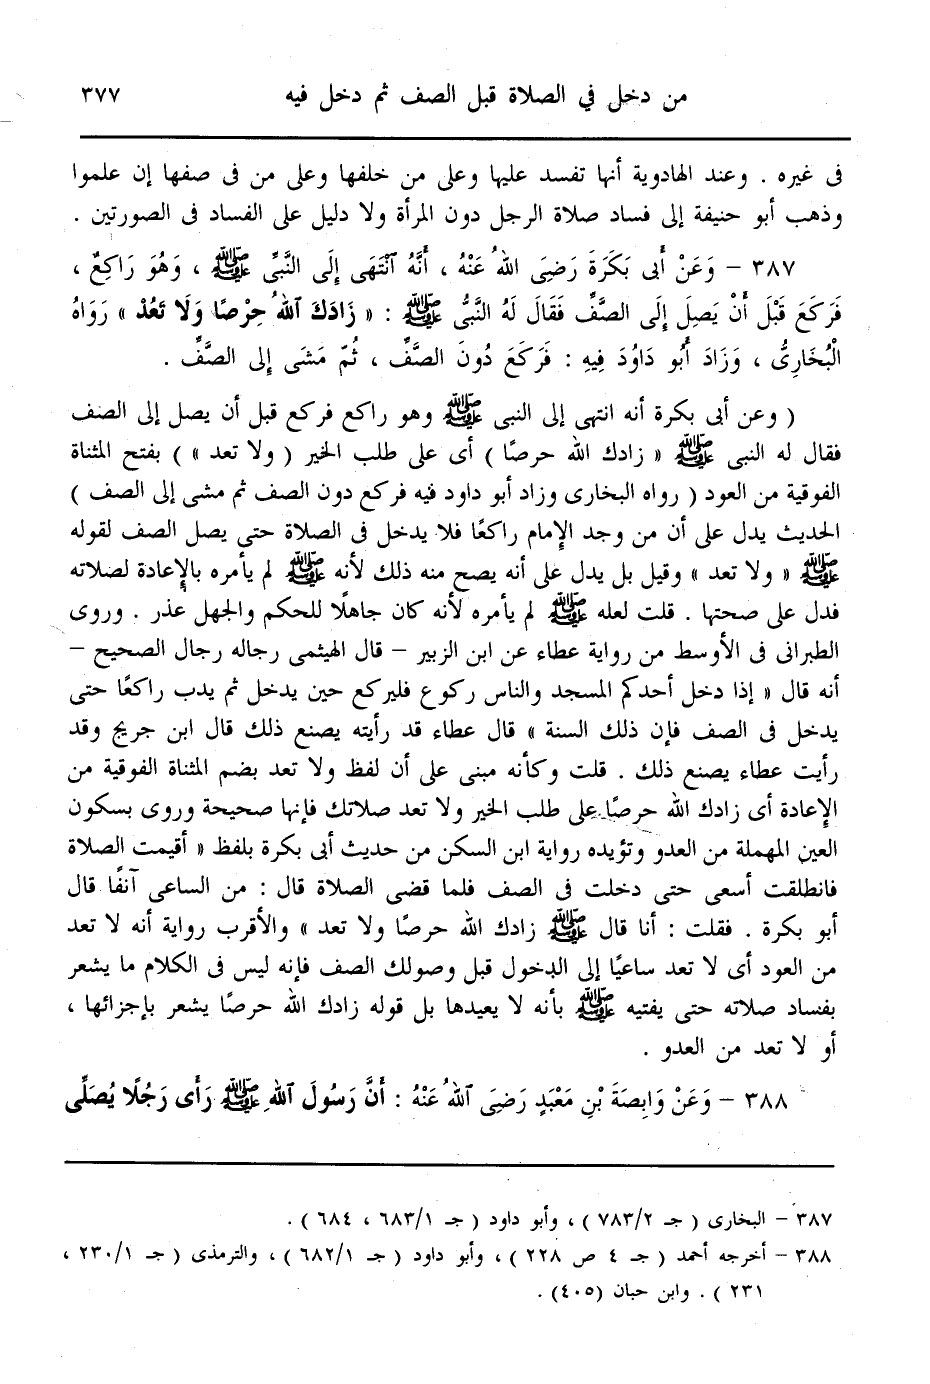 من دخل في الصلاة قبل الصف ثم دخل فيه ٣٧٧
فى غيره . وعند الهادوية أنها تفسد عليها وعلى من خلفها وعلى من فى صفها إن علموا
وذهب أبو حنيفة إلى فساد صلاة الرجل دون المرأة ولا دليل على الفساد فى الصورتين .
٣٨٧ – وَعَنْ أَبى بَكَرَةَ رَضِىَ اللهُ عَنْهُ ، أَنَّهُ ٱنْتَهَى إِلَى النَّبىِّ ﷺ ، وَهُوَ رَاكِعٌ ،
فَرَكَعَ قَبْلَ أَنْ يَصِلَ إِلَى الصَّفِّ فَقَالَ لَهُ النَّبىُّ ﷺ : « زَادَكَ اللهُ حِرْصًا وَلَا تَعُدْ » رَوَاهُ
الْبُخَارِىُّ ، وَزَادَ أَبُو دَاوُدَ فِيهِ : فَرَكَعَ دُونَ الصَّفِّ ، ثُمّ مَشَى إِلى الصَّفِّ .
( وعن أبى بكرة أنه انتهى إلى النبى ﷺ وهو راكع فركع قبل أن يصل إلى الصف
فقال له النبى ﷺ « زادك الله حرصًا ) أى على طلب الخير ( ولا تعد » ) بفتح المثناة
الفوقية من العود ( رواه البخارى وزاد أبو داود فيه فركع دون الصف ثم مشى إلى الصف )
الحديث يدل على أن من وجد الإمام راكعًا فلا يدخل فى الصلاة حتى يصل الصف لقوله
ﷺ « ولا تعد » وقيل بل يدل على أنه يصح منه ذلك لأنه ﷺ لم يأمره بالإعادة لصلاته
فدل على صحتها . قلت لعله ﷺ لم يأمره لأنه كان جاهلًا للحكم والجهل عذر . وروى
الطبرانى فى الأوسط من رواية عطاء عن ابن الزبير – قال الهيثمى رجاله رجال الصحيح –
أنه قال « إذا دخل أحدكم المسجد والناس ركوع فليركع حين يدخل ثم يدب راكعًا حتى
يدخل فى الصف فإن ذلك السنة » قال عطاء قد رأيته يصنع ذلك قال ابن جريج وقد
رأيت عطاء يصنع ذلك . قلت وكأنه مبنى على أن لفظ ولا تعد بضم المثناة الفوقية من
الإعادة أى زادك الله حرصًا على طلب الخير ولا تعد صلاتك فإنها صحيحة وروى بسكون
العين المهملة من العدو وتؤيده رواية ابن السكن من حديث أبى بكرة بلفظ « أقيمت الصلاة
فانطلقت أسعى حتى دخلت فى الصف فلما قضى الصلاة قال : من الساعى آنفًا قال
أبو بكرة . فقلت : أنا قال ﷺ زادك الله حرصًا ولا تعد » والأقرب رواية أنه لا تعد
من العود أى لا تعد ساعيًا إلى الدخول قبل وصولك الصف فإنه ليس فى الكلام ما يشعر
بفساد صلاته حتى يفتيه ﷺ بأنه لا يعيدها بل قوله زادك الله حرصًا يشعر بإجزائها ،
أو لا تعد من العدو .
٣٨٨ – وَعَنْ وَابِصَةَ بْنِ مَعْبَدٍ رَضِىَ اللهُ عَنْهُ : أَنَّ رَسُولَ اللهِ ﷺ رَأى رَجُلًا يُصَلِّى
٣٨٧ – البخارى ( جـ ٧٨٣/٢ ) ، وأبو داود ( جـ ٦٨٣/١ ، ٦٨٤ ) .
٣٨٨ – أخرجه أحمد ( جـ ٤ ص ٢٢٨ ) ، وأبو داود ( جـ ٦٨٢/١ ) ، والترمذى ( جـ ٢٣٠/١ ،
٢٣١ ) . وابن حبان (٤٠٥) .